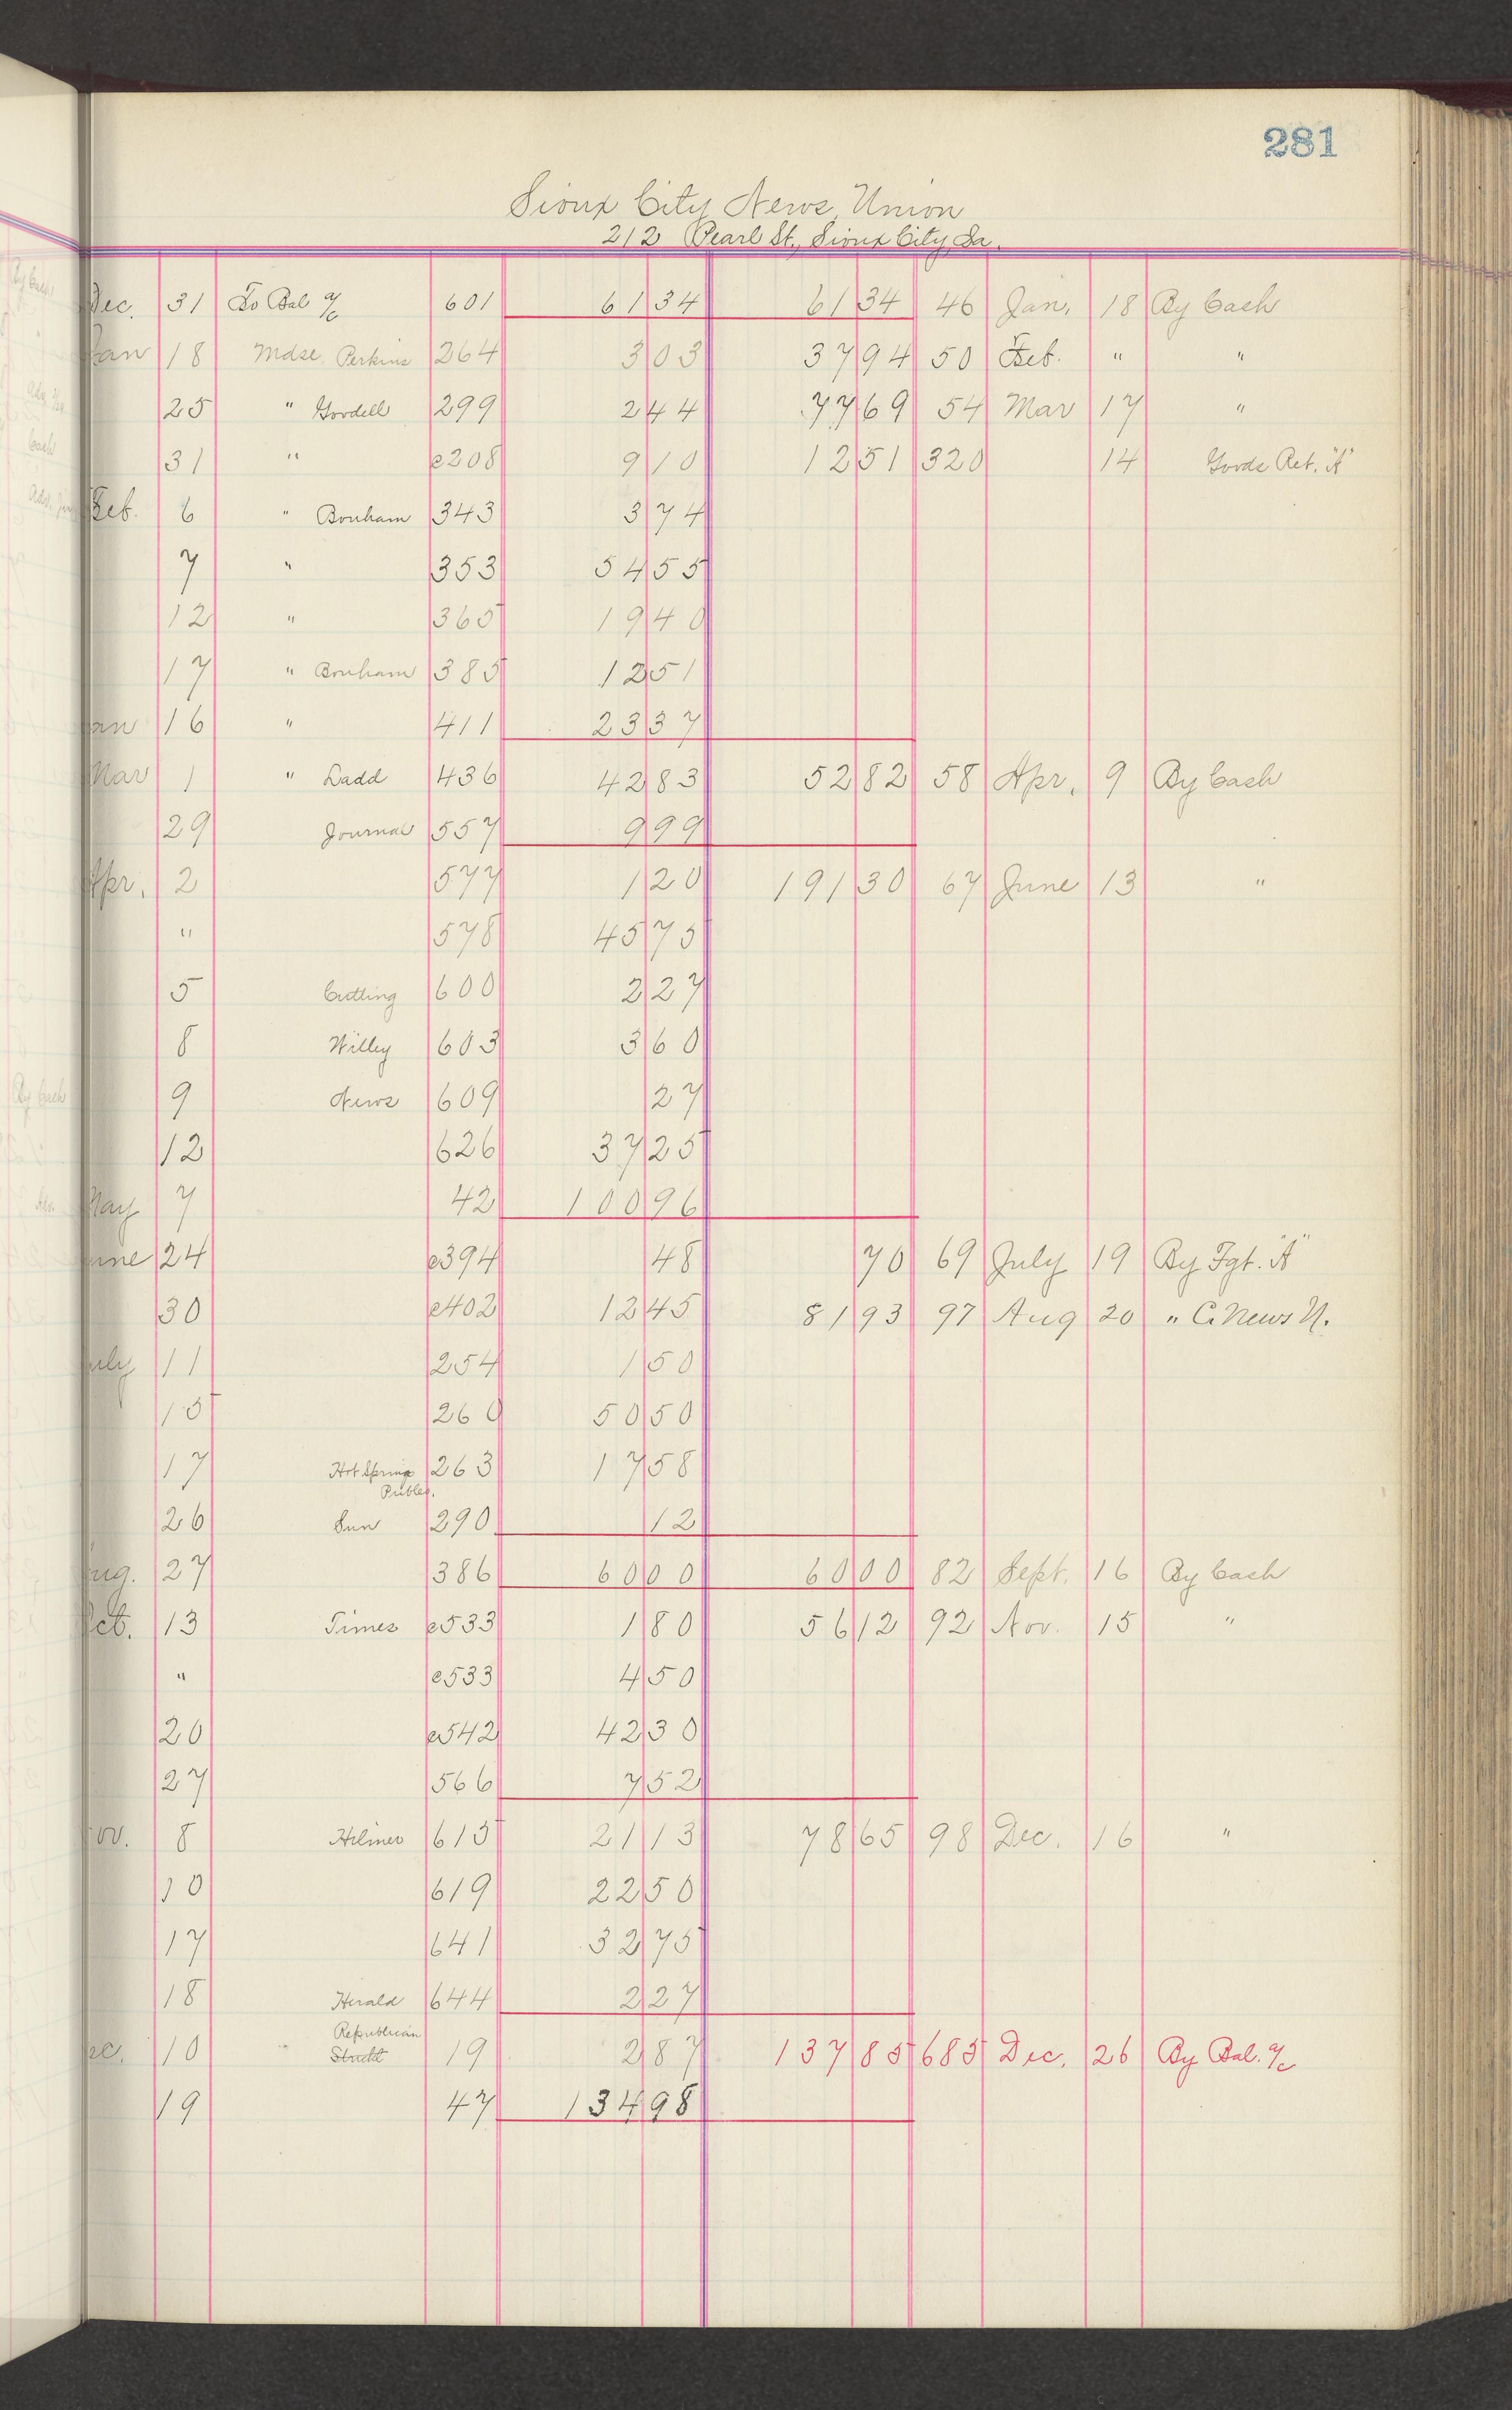 281
Sioux City News Union
212 Pearl St., Sioux City, Ia.
Dec. 31 To Bal a/c 601 61 34 61 34 46 Jan. 18 By Cash
Jan 18 Mdse Perkins 264 3 03 37 94 50 Feb. " "
25 " Goodell 299 2 44 77 69 54 Mar 17 "
31 " e208 9 10 12 51 320 14 Goods Ret. "A"
Feb. 6 " Bonham 343 3 74
7 " 353 54 55
12 " 365 19 40
17 " Bonham 385 12 51
Jan 16 " 411 23 37
Mar 1 " Ladd 436 42 83 52 82 58 Apr. 9 By Cash
29 Journal 557 9 99
Apr. 2 577 1 20 191 30 67 June 13 "
" 578 45 75
5 Cutting 600 2 27
8 Willey 603 3 60
9 News 609 27
12 626 37 25
May 7 42 100 96
June 24 e394 48 70 69 July 19 By Fgt. "A"
30 e402 12 45 81 93 97 Aug 20 " C. News U.
July 11 254 1 50
15 260 50 50
17 Hot Springs 263 17 58
Publex.
26 Sun 290 12
Aug. 27 386 60 00 60 00 82 Sept. 16 By Cash
Oct. 13 Times e533 1 80 56 12 92 Nov. 15 "
" e533 4 50
20 e542 42 30
27 566 7 52
Nov. 8 613 21 13 78 65 98 Dec. 16 "
10 619 22 50
17 641 32 75
18 Herald 644 2 27
Republican
Dec. 10 19 2 87 137 85 685 Dec. 26 By Bal. a/c
19 47 134 98